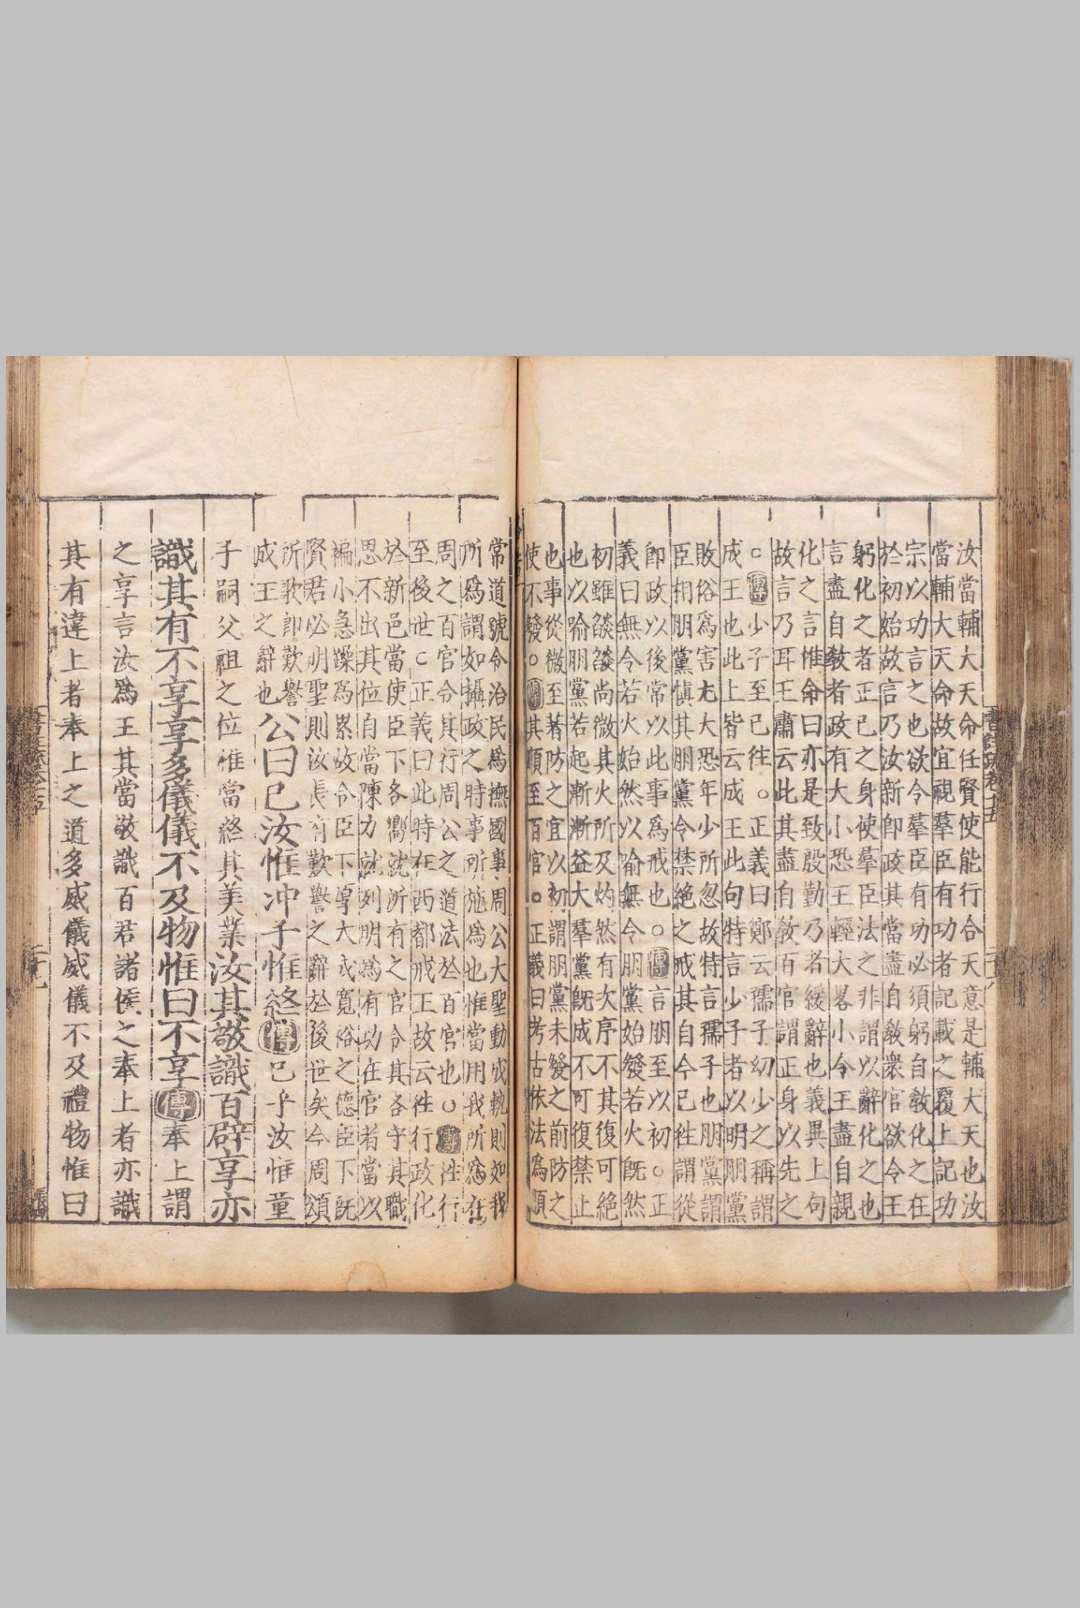 汝當輔大天命任賢使能行合天意是輔大天也汝
當輔大天命故宜視羣臣有功者記載之覆上記功
宗以功言之也欲令羣臣有功必須躬自敎化之在
於初始故言乃汝新卽政其當盡自敎衆官欲令王
躬化之者正已之身使羣臣法之非謂以辭化之也
言盡自敎者政有大小恐王輕大畧小令王盡自親
化之言惟命曰亦是致殷勤乃者緩辭也義異上句
故言乃耳王肅云此其盡自敎百官謂正身以先之
○傳少子至已往○正義曰鄭云孺子幼少之稱謂
成王也此上皆云成王此句特言少子者以明朋黨
敗俗爲害尤大恐年少所忽故特言孺子也朋黨謂
臣相朋黨愼其朋黨令禁絶之戒其自今已徃謂從
卽政以後常以此事爲戒也○傳言朋至以初○正
義曰無令若火始然以喻無令朋黨始發若火旣然
初雖燄燄尚微其火所及灼然有次序不其復可絶
也以喻朋黨若起漸漸益大羣黨旣成不可復禁止
也事從微至著防之宜以初謂朋黨未發之前防之
使不發○傳其順至百官○正義曰考古依法爲順
常道號令治民爲撫國事周公大聖動成軌則如我
所爲謂如攝政之時事所施爲也惟當用我所爲在
周之百官令其行周公之道法於百官也○傳徃行
至後世○正義曰此時在西都戒王故云徃行政化
於新邑當使臣下各嚮就所有之官令其各守其職
思不出其位自當陳力就列明爲有功在官者當以
褊小急躁爲累故令臣下厚大成寬裕之德臣下旣
賢君必明聖則汝長有歎譽之辭於後世矣今周頌
所歌卽歎譽
成王之辭也公曰已汝惟冲子惟終傳已乎汝惟童
子嗣父祖之位惟當終其美業汝其敬識百辟享亦
識其有不享享多儀儀不及物惟曰不享傳奉上謂
之享言汝爲王其當敬識百君諸侯之奉上者亦識
其有違上者奉上之道多威儀威儀不及禮物惟曰